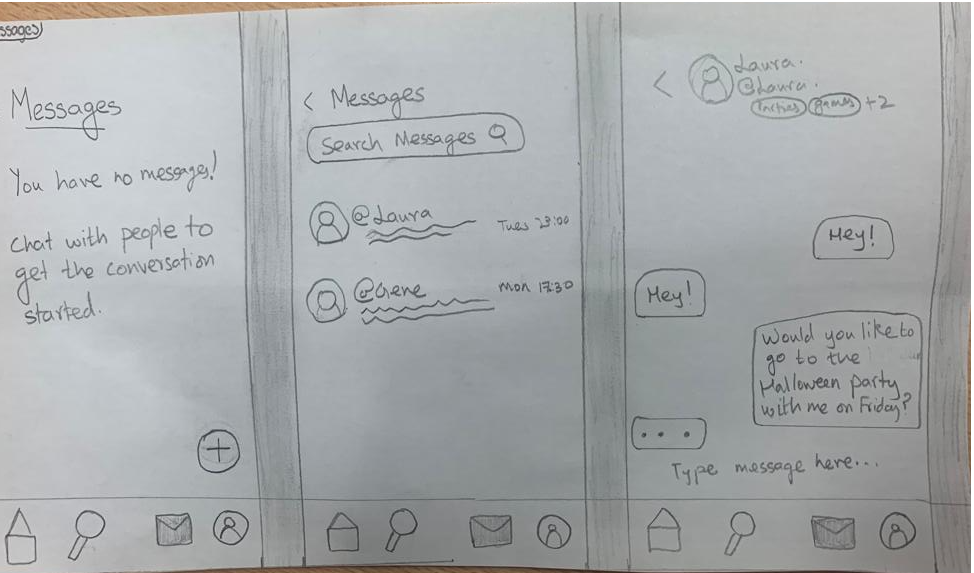 ssages)
Messages
You have no messages!
Chat with people to
get the conversation
started.
+
< Messages
Search Messages
@Laura
Tues 23:00
@Gene
Mon 17:30
<
Laura.
@Laura.
Parties games +2
Hey!
Hey!
Would you like to
go to the
Halloween party
with me on Friday?
...
Type message here...